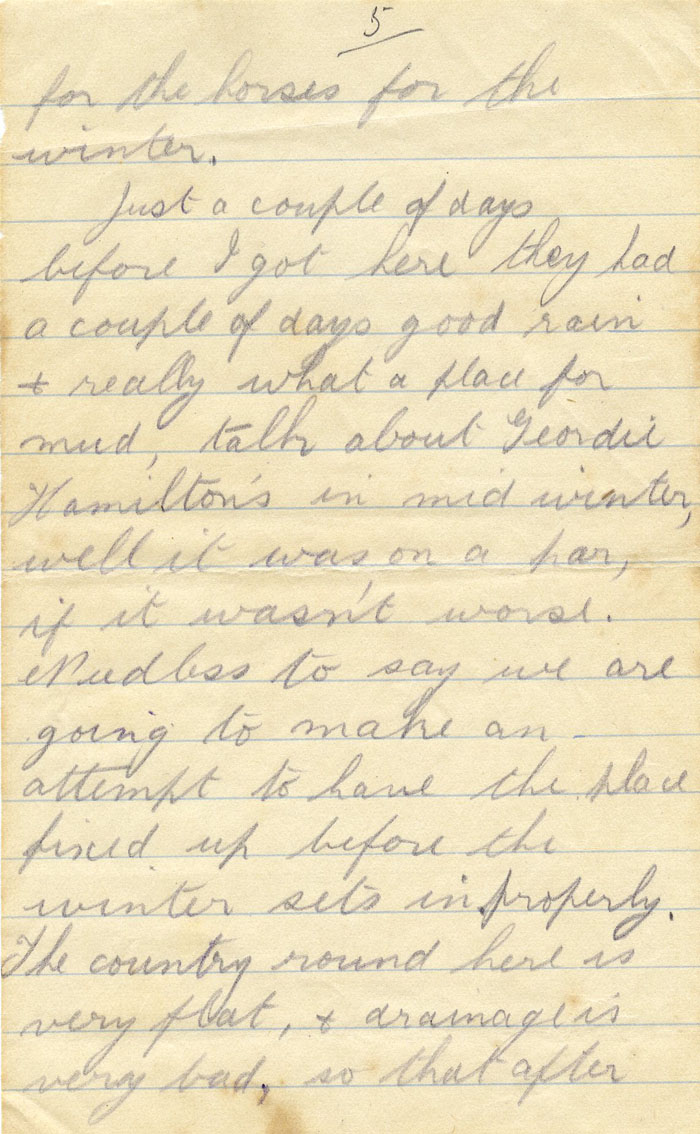 5
for the horses for the
winter.
Just a couple of days
before I got here they had
a couple of days good rain
& really what a place for
mud, talk about Geordie
Hamilton's in mid winter,
well it was on a par,
if it wasn't worse.
Needless to say we are
going to make an
attempt to have the place
fixed up before the
winter sets in properly.
The country round here is
very flat, & drainage is
very bad, so that after